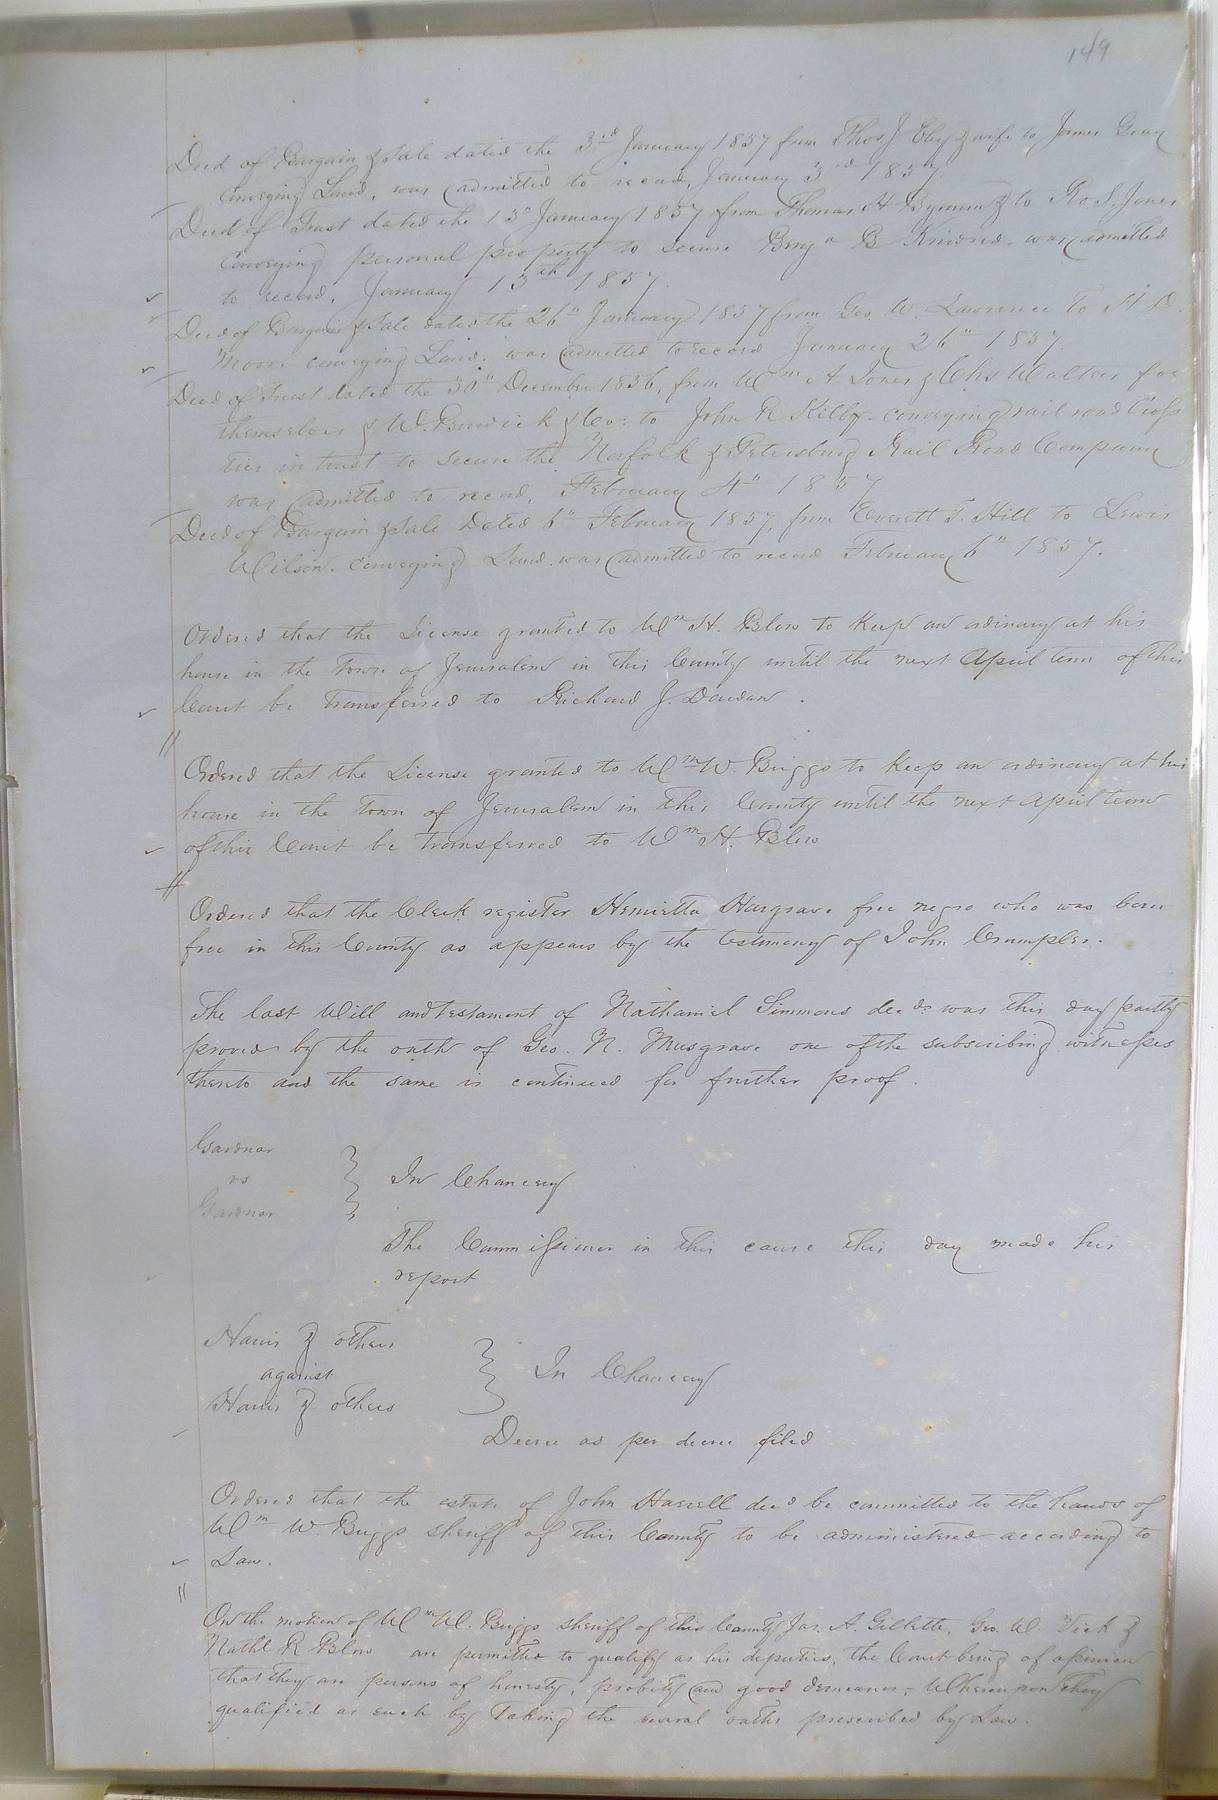 149
Deed of Bargain & Sale dated the 3rd January 1857 from Thos J Eley & wife to James Gray
conveying Land, was admitted to record, January 3rd 1857.
Deed of Trust dated the 13" January 1857 from Thomas H Bynum & to Ro S. Jones
conveying personal property to secure B Kindred was admitted
to record, January 13th 1857.
Deed of Bargain & Sale dated the 26" January 1857 from Geo. W. Lawrence to H D.
Moore conveying Land. was admitted to record January 26" 1857
Deed of Trust dated the 30" December 1856, from Wm A Jones & Chs Walters for
themselves & W. & Co: to John R Kilby conveying rail road Cross
ties in trust to secure the Norfolk & Petersburg Rail Road Company
was admitted to record, February 4" 1857
Deed of Bargain & Sale Dated 6" February 1857, from Everett T. Hill to Lewis
Wilson. conveying Land. was admitted to record February 6" 1857.
Ordered that the License granted to Wm H. Blow to Keep an ordinary at his
house in the Town of Jerusalem in this County until the next April term of this
Court be transferred to Richard J. Dowdan.
Ordered that the License granted to Wm W. Briggs to Keep an ordinary at his
house in the Town of Jerusalem in this County until the next April term
of this Court be transferred to Wm H. Blow
Ordered that the Clerk register Henrietta Hargrave free negro who was born
free in this County as appears by the testimony of John Crumpler.
The last Will and testament of Nathaniel Simmons decd was this day partly
proved by the oath of Geo. N. Musgrave one of the subscribing witnesses
thereto and the same is continued for further proof.
Gardner
vs
Gardner
In Chancery
The Commissioner in this cause this day made his
report
Harris & others
against
Harris & others
In Chancery
Decree as per decree filed
Ordered that the estate of John Harrell decd be committed to the hands of
Wm W. Briggs sheriff of this County to be administered according to
Law.
On the motion of Wm W. Briggs sheriff of this County Jas. A. Gillette, Geo. W. Vick &
Nathl R Blow are permitted to qualify as his deputies, the Court being of opinion
that they are persons of honesty, probity and good demeanor; Whereupon they
qualified as such by Taking the several oaths prescribed by Law.